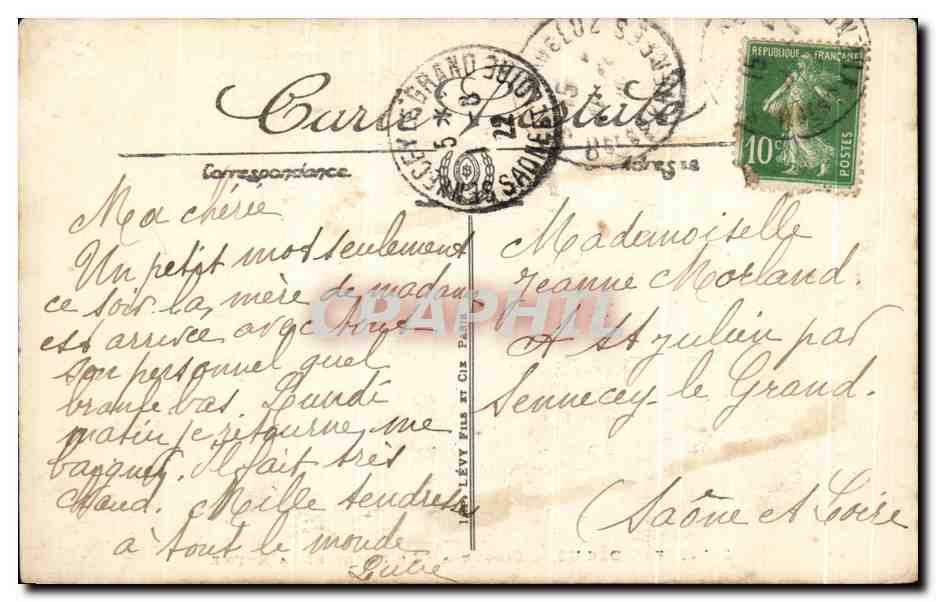 Carte Postale
Correspondance
Adresse
RÉPUBLIQUE FRANÇAISE
10c
POSTES
SENNECEY LE GRAND
SAONE ET LOIRE
5 * - 8
22
Ma chérie
Un petit mot seulement
ce soir la mère de madame
est arrivée avec tout
son personnel quel
branle bas. Lundi
matin je retourne me
baigner. Il fait très
chaud. Mille tendresses
à tout le monde
Mademoiselle
Jeanne Morland.
A St Julien par
Sennecey le Grand.
Saône et Loire
LÉVY FILS ET CIE PARIS
CPAPHIL